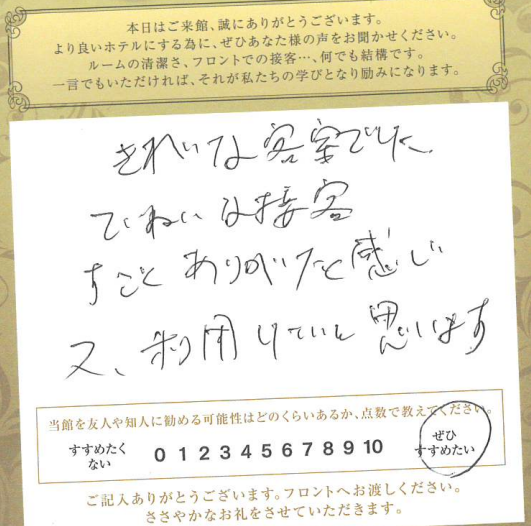 本日はご来館、誠にありがとうございます。
より良いホテルにする為に、ぜひあなた様の声をお聞かせください。
ルームの清潔さ、フロントでの接客…、何でも結構です。
一言でもいただければ、それが私たちの学びとなり励みになります。
きれいな客室でした。
ていねいな接客
すごく ありがたいと感じ
又、利用したいと思います
当館を友人や知人に勧める可能性はどのくらいあるか、点数で教えてください。
すすめたくない 0 1 2 3 4 5 6 7 8 9 10 ぜひすすめたい
ご記入ありがとうございます。フロントへお渡しください。
ささやかなお礼をさせていただきます。